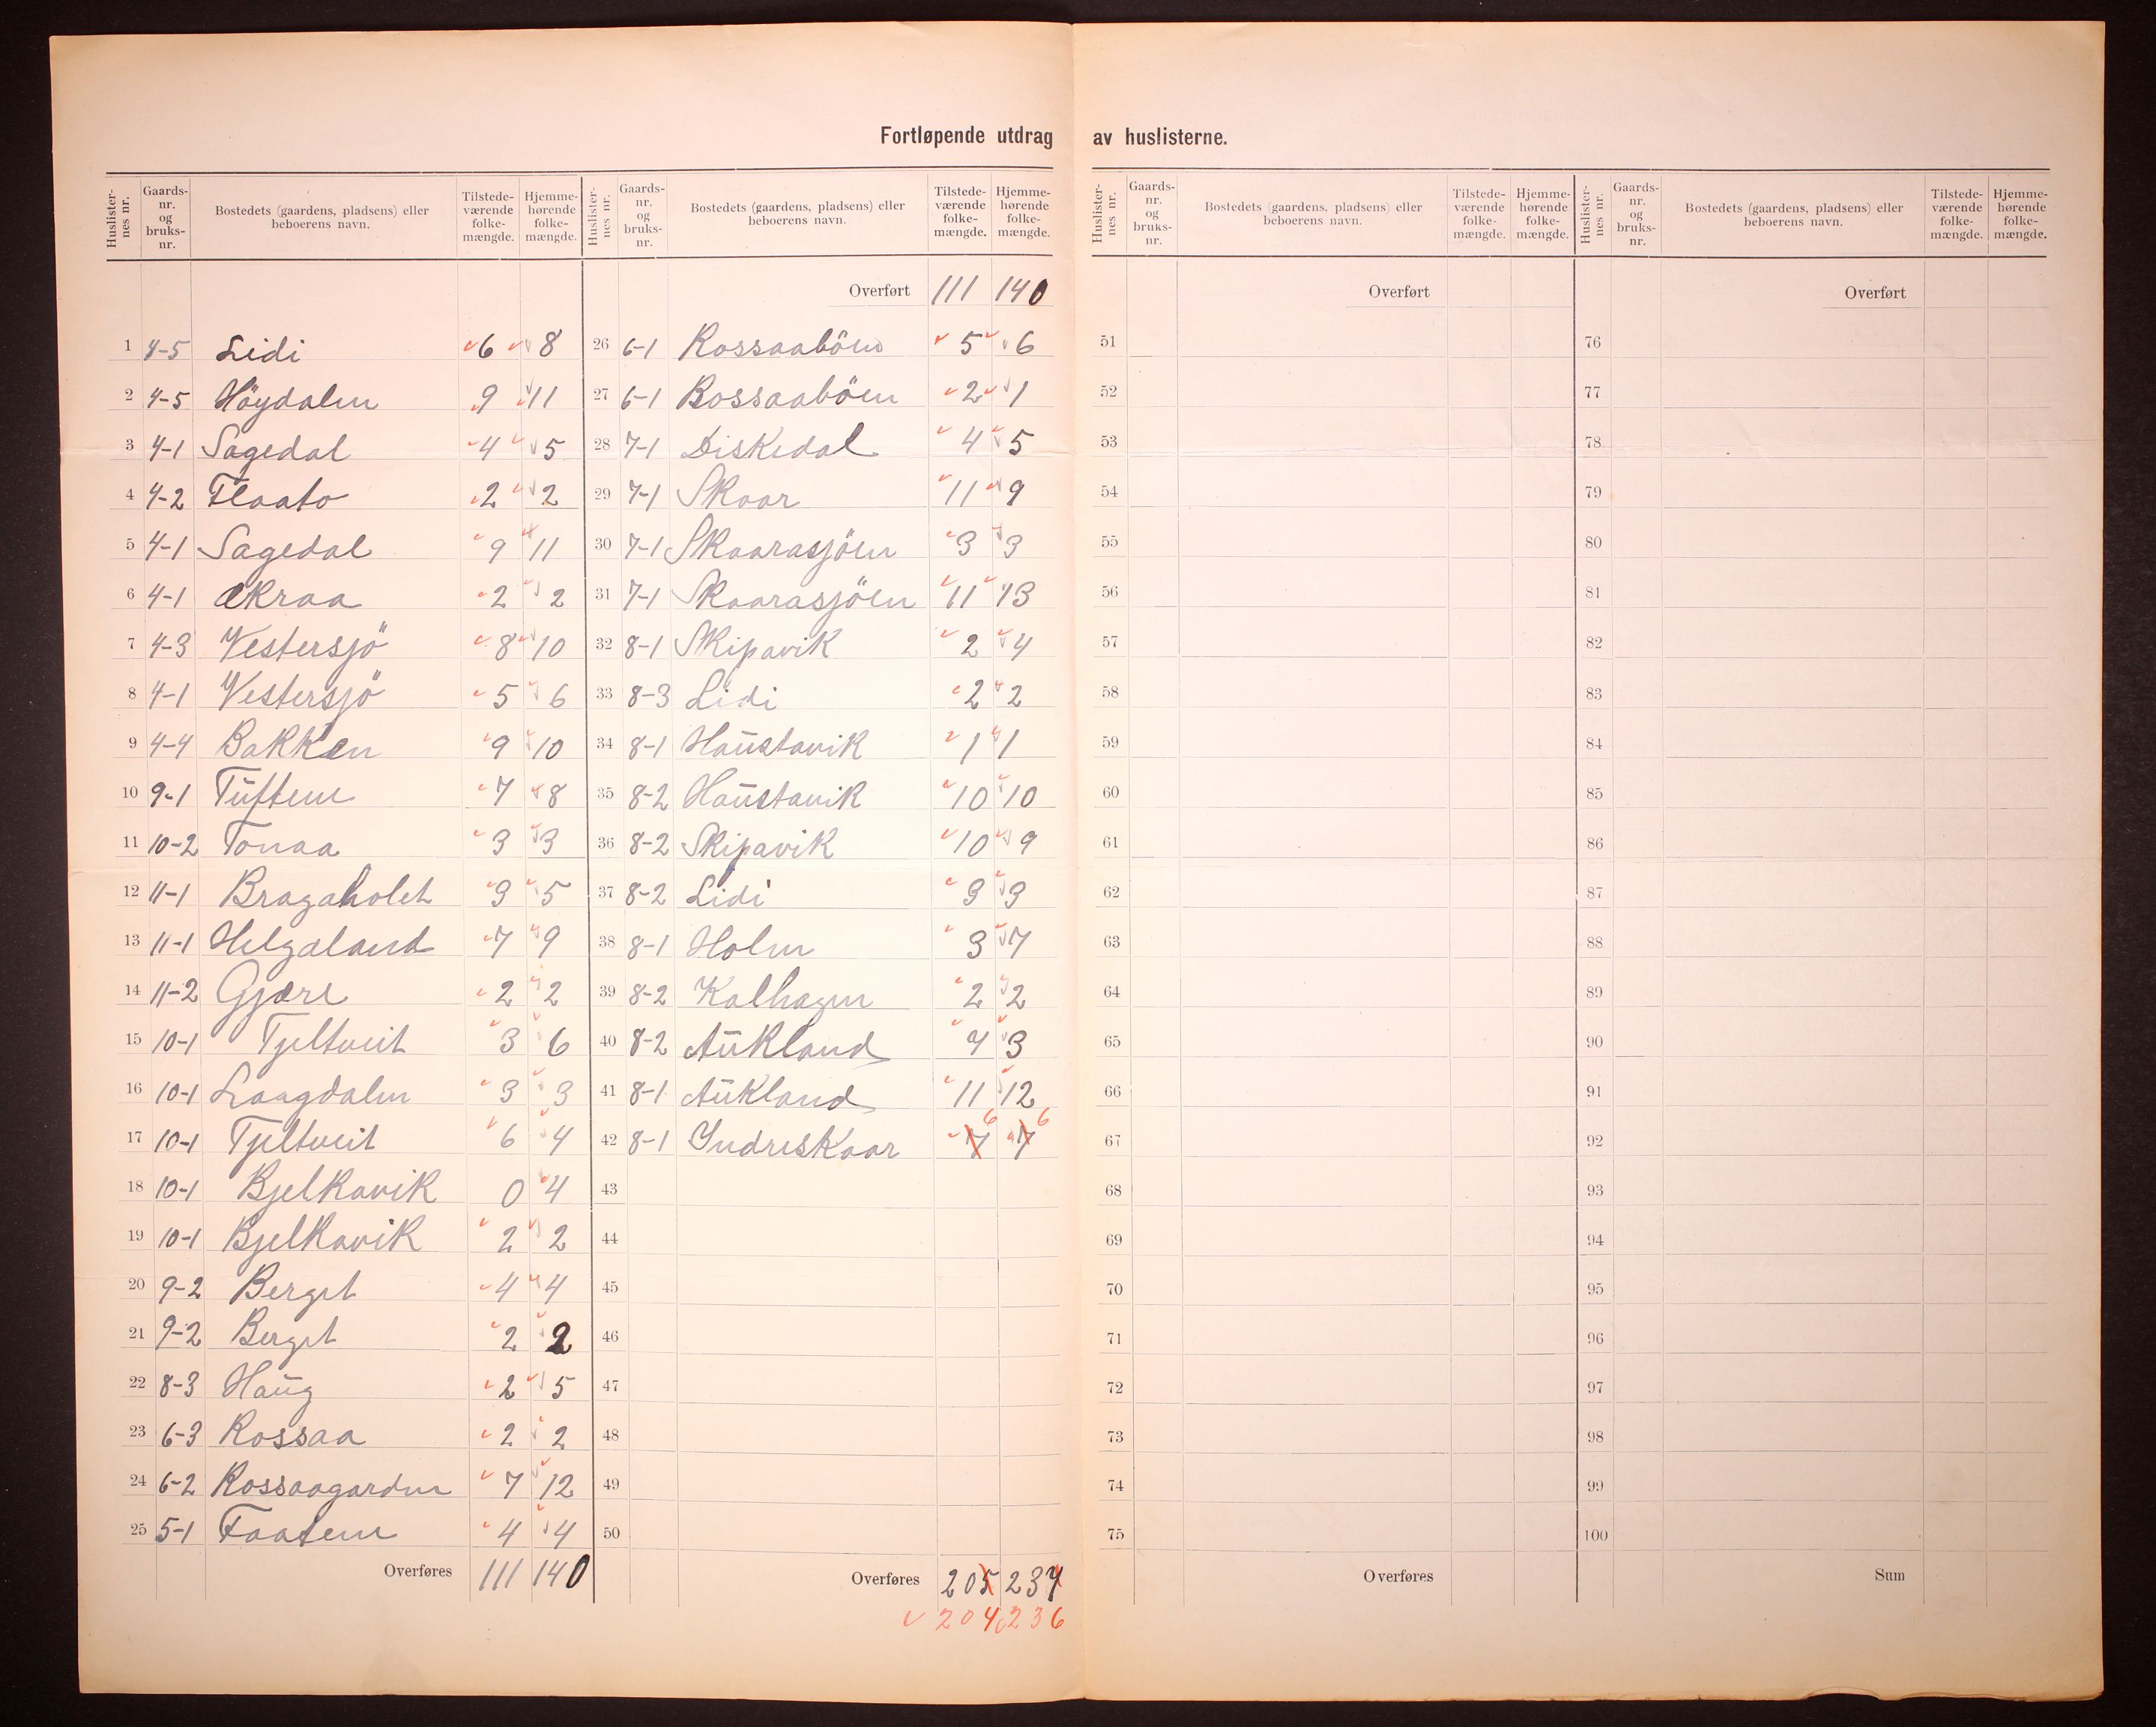 Fortløpende utdrag av huslisterne.
Huslister-nes nr. Gaards-nr. og bruks-nr. Bostedets (gaardens, pladsens) eller beboerens navn. Tilstede-værende folke-mængde. Hjemme-hørende folke-mængde.
1 4-5 Lidi 6 8
2 4-5 Höydalen 9 11
3 4-1 Sagedal 4 5
4 4-2 Flaato 2 2
5 4-1 Sagedal 9 11
6 4-1 Ækraa 2 2
7 4-3 Vestersjö 8 10
8 4-1 Vestersjö 5 6
9 4-4 Bakken 9 10
10 9-1 Tuftene 7 8
11 10-2 Tonaa 3 3
12 11-1 Bragaholet 3 5
13 11-1 Helgaland 7 9
14 11-2 Gjære 2 2
15 10-1 Tjeltveit 3 6
16 10-1 Laagdalen 3 3
17 10-1 Tjeltveit 6 4
18 10-1 Bjelkavik 0 4
19 10-1 Bjelkavik 2 2
20 9-2 Berget 4 4
21 9-2 Berget 2 2
22 8-3 Haug 2 5
23 6-3 Rossaa 2 2
24 6-2 Rossaagarden 7 12
25 5-1 Faatene 4 4
Overføres 111 140
Huslister-nes nr. Gaards-nr. og bruks-nr. Bostedets (gaardens, pladsens) eller beboerens navn. Tilstede-værende folke-mængde. Hjemme-hørende folke-mængde.
Overført 111 140
26 6-1 Rossaaböen 5 6
27 6-1 Rossaaböen 2 1
28 7-1 Diskedal 4 5
29 7-1 Skaar 11 9
30 7-1 Skaarasjöen 3 3
31 7-1 Skaarasjöen 11 13
32 8-1 Skipavik 2 4
33 8-3 Lidi 2 2
34 8-1 Haustavik 1 1
35 8-2 Haustavik 10 10
36 8-2 Skipavik 10 9
37 8-2 Lidi 3 3
38 8-1 Holm 3 7
39 8-2 Kalhagen 2 2
40 8-2 Aukland 4 3
41 8-1 Aukland 11 12
42 8-1 Indreskaar 7 6 7 6
43
44
45
46
47
48
49
50
Overføres 205 237
204 236
Huslister-nes nr. Gaards-nr. og bruks-nr. Bostedets (gaardens, pladsens) eller beboerens navn. Tilstede-værende folke-mængde. Hjemme-hørende folke-mængde.
Overført
51
52
53
54
55
56
57
58
59
60
61
62
63
64
65
66
67
68
69
70
71
72
73
74
75
Overføres
Huslister-nes nr. Gaards-nr. og bruks-nr. Bostedets (gaardens, pladsens) eller beboerens navn. Tilstede-værende folke-mængde. Hjemme-hørende folke-mængde.
Overført
76
77
78
79
80
81
82
83
84
85
86
87
88
89
90
91
92
93
94
95
96
97
98
99
100
Sum